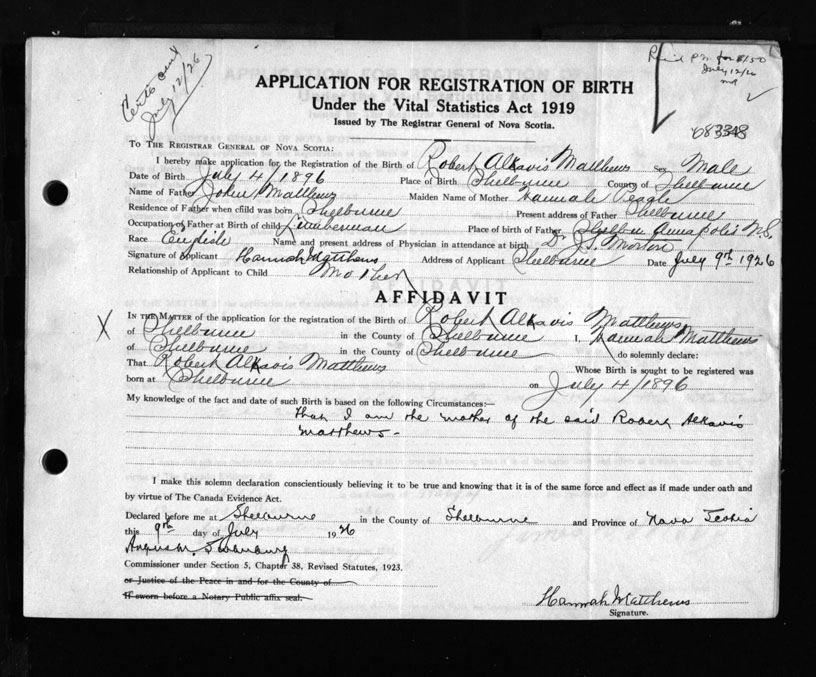 July 12/26
Paid for
July 12/26
APPLICATION FOR REGISTRATION OF BIRTH
Under the Vital Statistics Act 1919
Issued by The Registrar General of Nova Scotia.
TO THE REGISTRAR GENERAL OF NOVA SCOTIA:
I hereby make application for the Registration of the Birth of Robert Alkavis Matthews Sex Male
Date of Birth July 4/1896 Place of Birth Shelburne County of Shelburne
Name of Father John Matthews Maiden Name of Mother Hannah
Residence of Father when child was born Shelburne Present address of Father Shelburne
Occupation of Father at Birth of child Lumberman Place of birth of Father Annapolis N.S.
Race English Name and present address of Physician in attendance at birth Dr J.S. Morton
Signature of Applicant Hannah Matthews Address of Applicant Shelburne Date July 9th 1926
Relationship of Applicant to Child Mother
AFFIDAVIT
X IN THE MATTER of the application for the registration of the Birth of Robert Alkavis Matthews
of Shelburne in the County of Shelburne I, Hannah Matthews
of Shelburne in the County of Shelburne do solemnly declare:
That Robert Alkavis Matthews Whose Birth is sought to be registered was
born at Shelburne on July 4/1896
My knowledge of the fact and date of such Birth is based on the following Circumstances:—
that I am the mother of the said Robert Alkavis
Matthews —
I make this solemn declaration conscientiously believing it to be true and knowing that it is of the same force and effect as if made under oath and
by virtue of The Canada Evidence Act.
Declared before me at Shelburne in the County of Shelburne and Province of Nova Scotia
this 9th day of July 1926
Commissioner under Section 5, Chapter 38, Revised Statutes, 1923.
or Justice of the Peace in and for the County of
If sworn before a Notary Public affix seal.
Hannah Matthews
Signature.